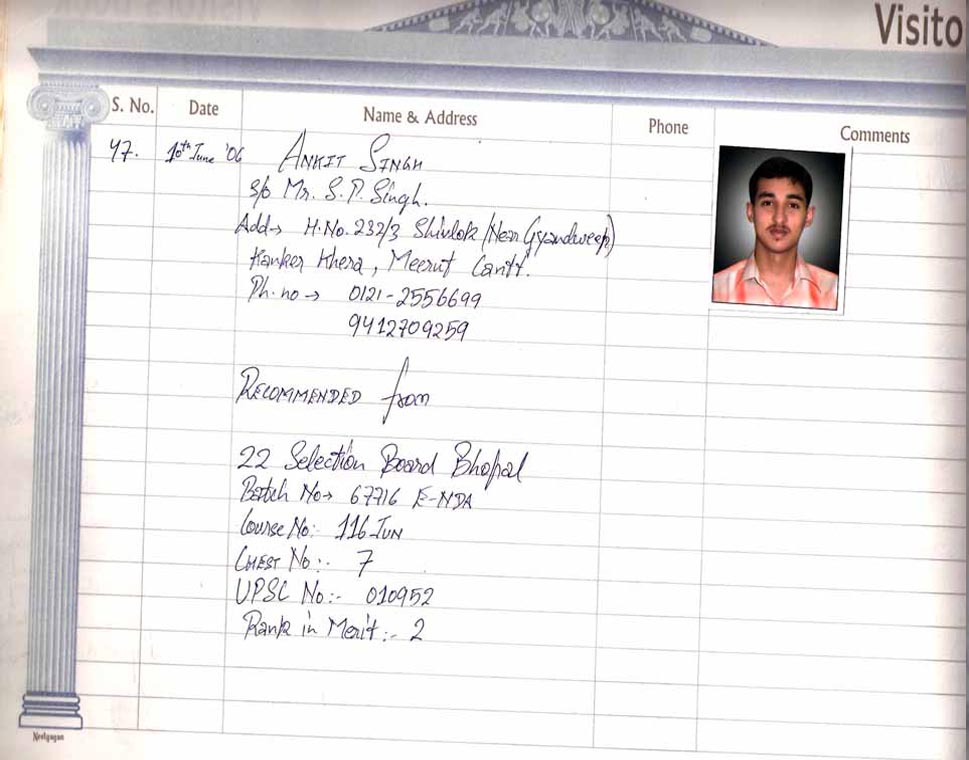 Visito
S. No. Date Name & Address Phone Comments
47. 10th June '06 ANKIT SINGH
S/o Mr. S.P. Singh.
Add→ H.No. 232/3 Shivlok (Near Gyandweep)
Kanker Khera, Meerut Cantt.
Ph. no → 0121-2556699
9412709259
RECOMMENDED from
22 Selection Board Bhopal
Batch No→ 67716 E-NDA
Course No:- 116 JUN
CHEST No:- 7
UPSC No:- 010952
Rank in Merit:- 2
Neelgagan